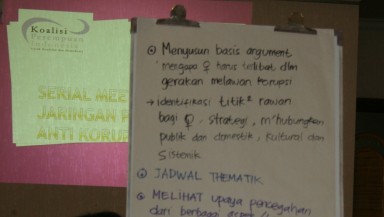 Koalisi
Perempuan
Indonesia
SERIAL MEE
JARINGAN P
ANTI KORU
Menyusun basis argument
mengapa ♀ harus terlibat dlm
gerakan melawan korupsi
→ identifikasi titik² rawan
bagi ♀. strategi, m'hubungkan
publik dan domestik, kultural dan
Sistemik
JADWAL THEMATIK
MELIHAT upaya pencegahan
dari berbagai